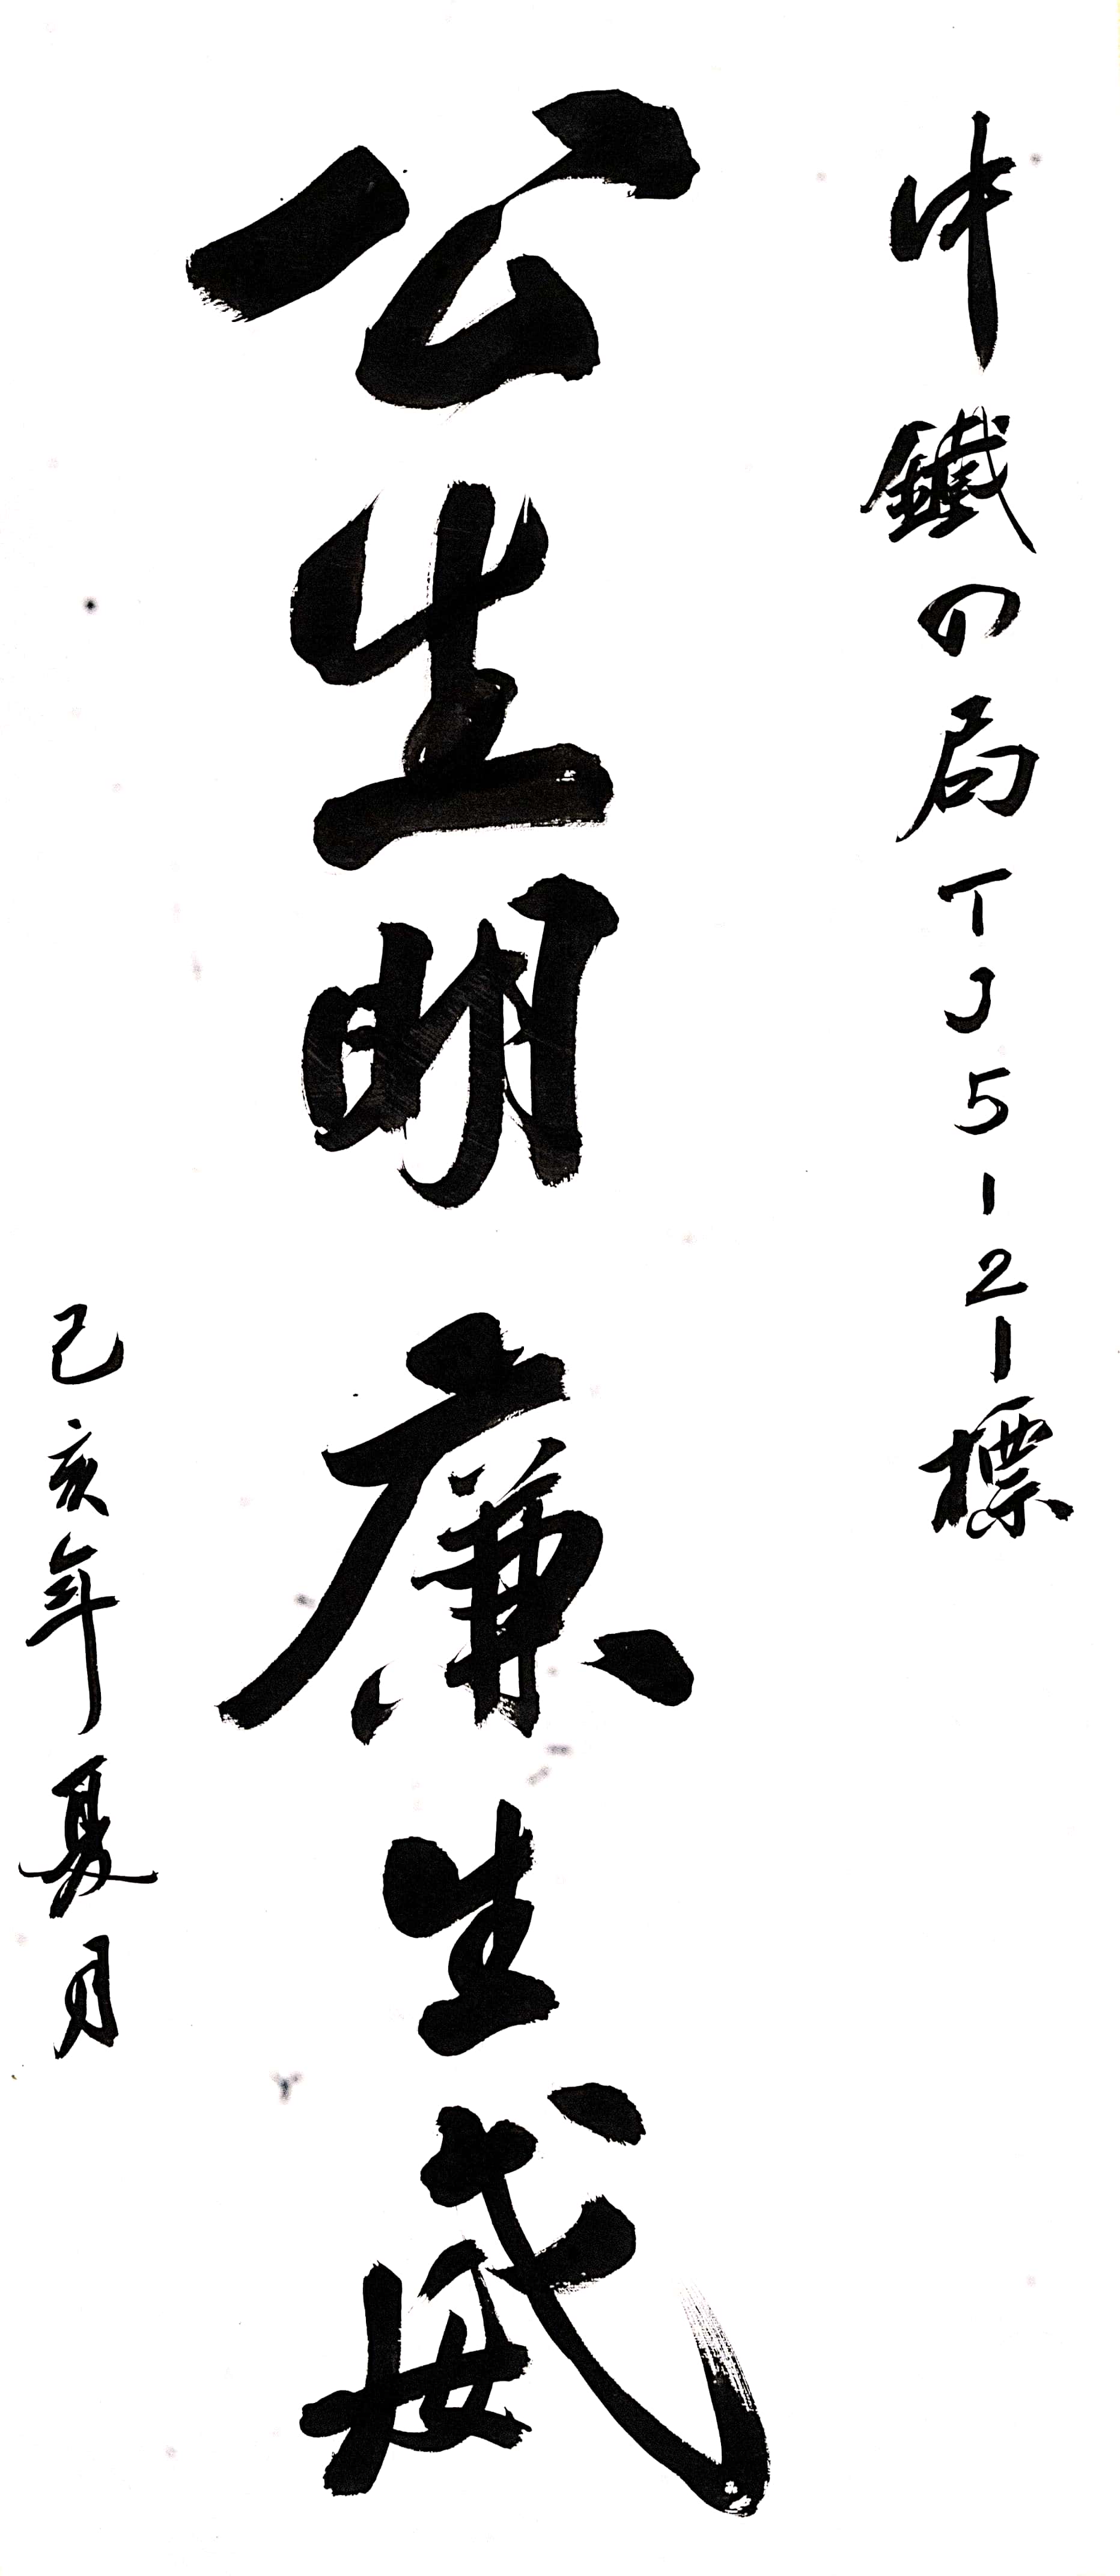 中鐵四局TJ5-2-標
公生明廉生威
己亥年夏月